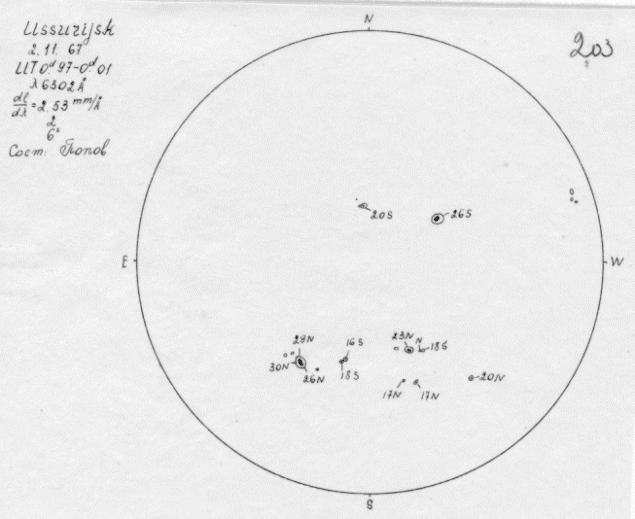 Ussurijsk
2.11.67
UT 0ᵈ.97-0ᵈ.01
λ 6302 Å
dl/dλ = 2.53 mm/Å
2
6ˢ
Сост: Попов
203
2
N
20S
26S
E
W
29N
16S
23N
N
18S
30N
26N
18S
17N
17N
20N
S